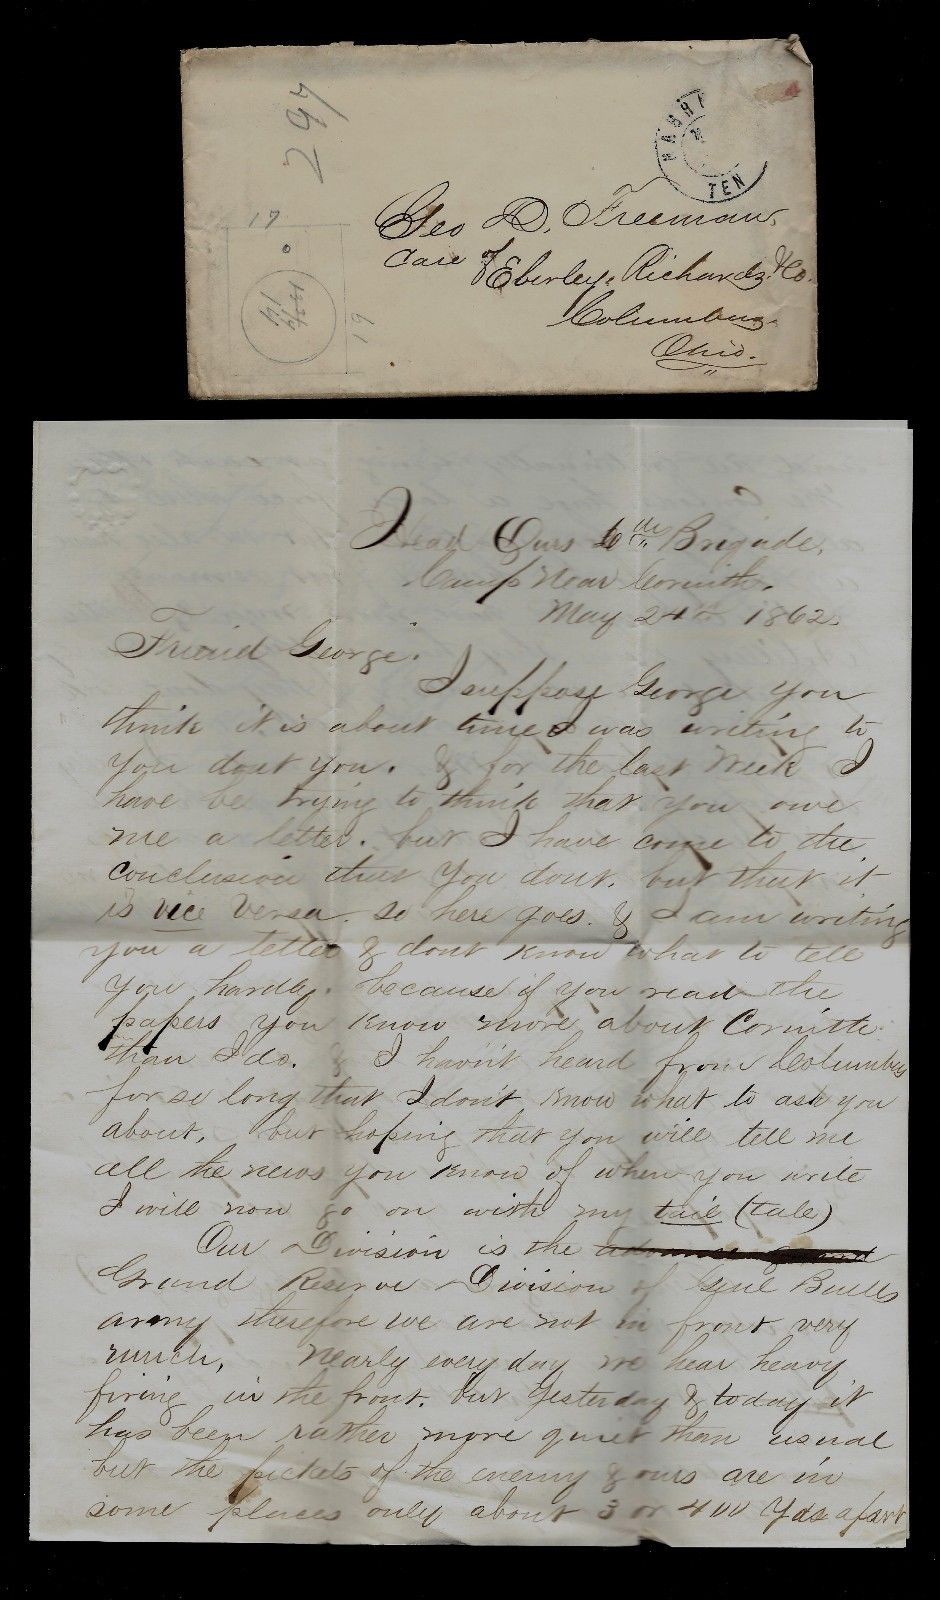 297
NASHV
TEN
17
19
Geo D. Freeman,
Care of
Eberley, Richards & Co.
Columbus
Ohio.
Head Qurs 6th Brigade,
Camp Near Corinth.
May 24th 1862.
Friend George.
I suppose George you
think it is about time I was writing to
you dont you. & for the last Week I
have be trying to think that you owe
me a letter. but I have come to the
conclusion that you dont. but that it
is vice versa. so here goes. & I am writing
you a letter & dont know what to tell
you hardly. because if you read the
papers you know more about Corinth
than I do. & I havn't heard from Columbus
for so long that I don't know what to ask you
about. but hoping that you will tell me
all the news you know of when you write
I will now go on with my tail (tale)
Our Division is the advance guard
Grand Reserve Division of Genl Buells
army therefore we are not in front very
much, Nearly every day we hear heavy
firing in the front. but Yesterday & today it
has been rather more quiet than usual
but the pickets of the enemy & ours are in
some places only about 3 or 400 Yds apart